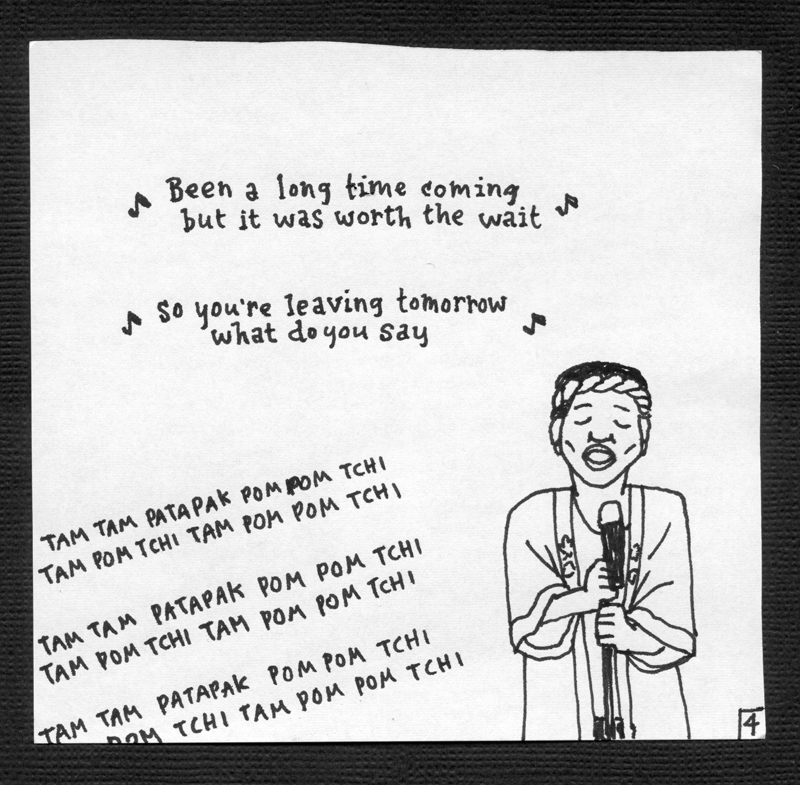 Been a long time coming
but it was worth the wait
So you're leaving tomorrow
what do you say
TAM TAM PATAPAK POM POM TCHI
TAM POM TCHI TAM POM POM TCHI
TAM TAM PATAPAK POM POM TCHI
TAM POM TCHI TAM POM POM TCHI
TAM TAM PATAPAK POM POM TCHI
POM TCHI TAM POM POM TCHI
4